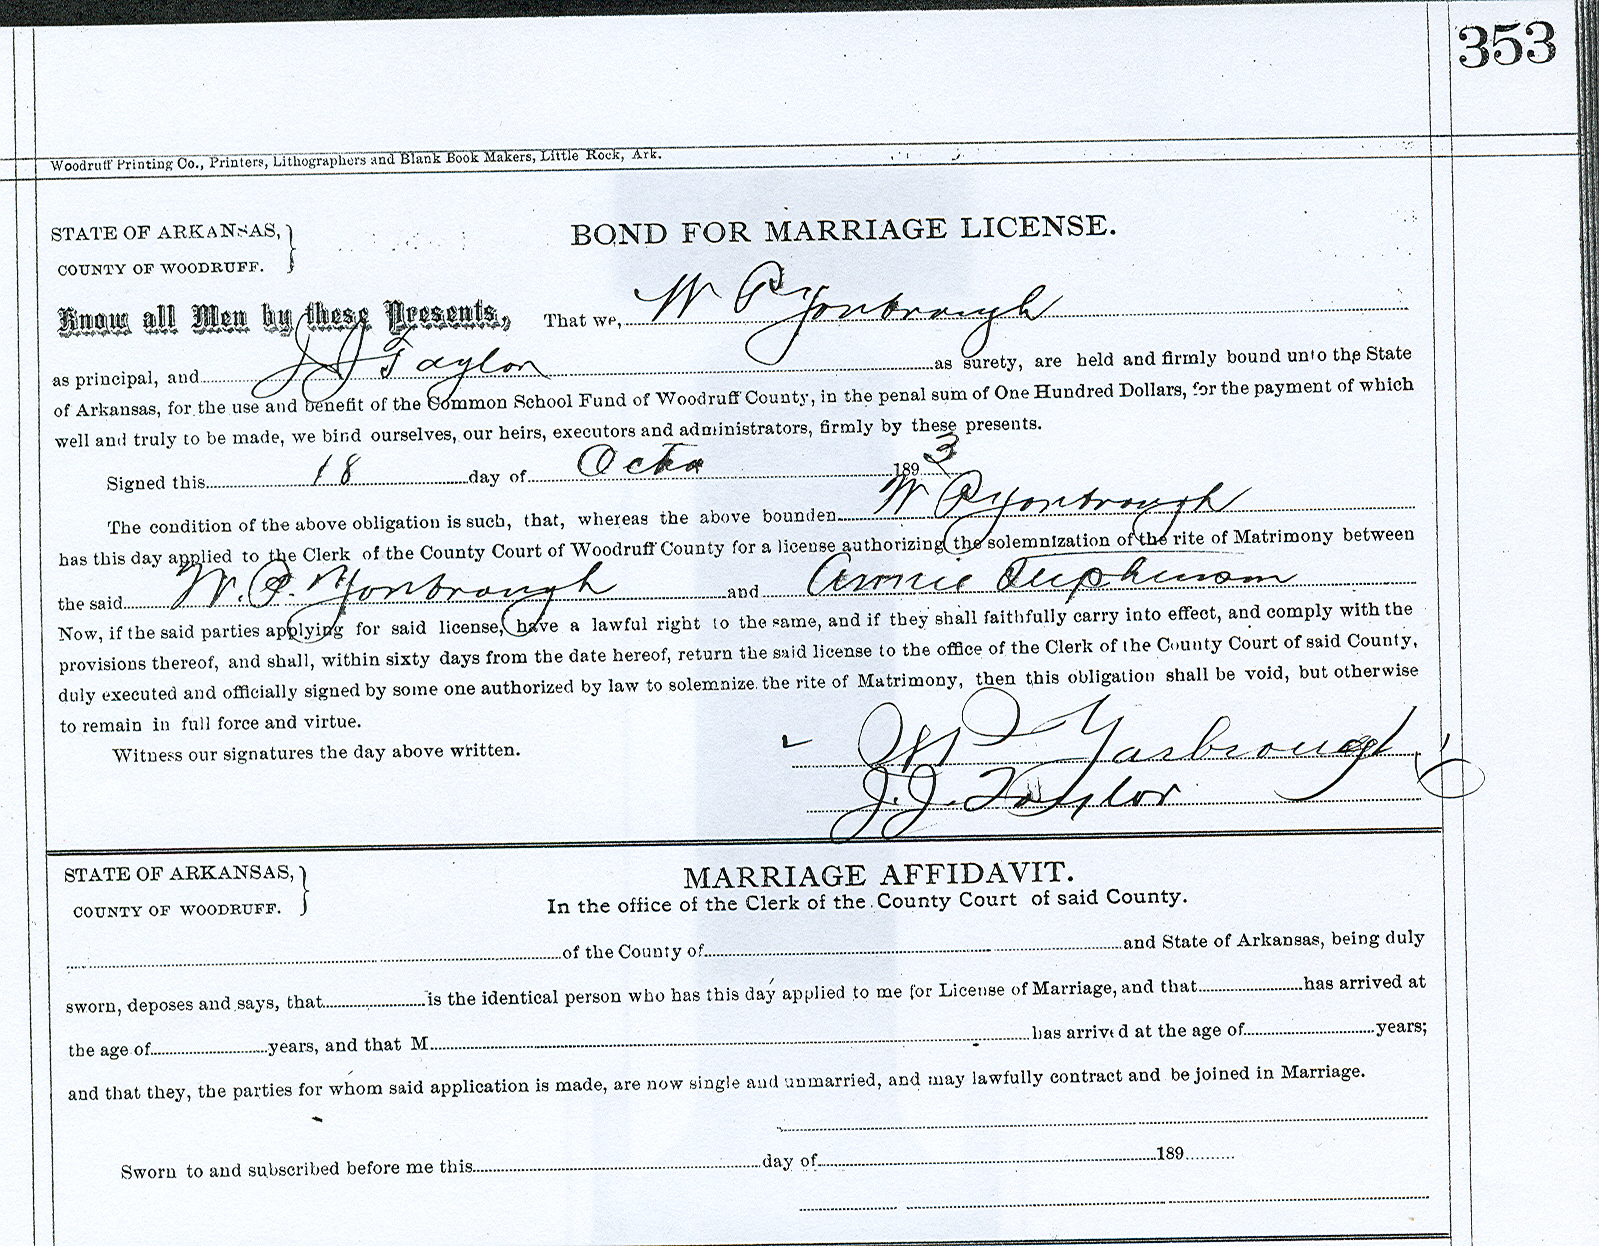 353
Woodruff Printing Co., Printers, Lithographers and Blank Book Makers, Little Rock, Ark.
STATE OF ARKANSAS,
COUNTY OF WOODRUFF.
BOND FOR MARRIAGE LICENSE.
Know all Men by these Presents, That we, W P Yorbrough
as principal, and J J Taylor as surety, are held and firmly bound unto the State
of Arkansas, for the use and benefit of the Common School Fund of Woodruff County, in the penal sum of One Hundred Dollars, for the payment of which
well and truly to be made, we bind ourselves, our heirs, executors and administrators, firmly by these presents.
Signed this 18 day of 1893
The condition of the above obligation is such, that, whereas the above bounden W P Yorbrough
has this day applied to the Clerk of the County Court of Woodruff County for a license authorizing the solemnization of the rite of Matrimony between
the said W. P. Yorbrough and Annie Stephenson
Now, if the said parties applying for said license, have a lawful right to the same, and if they shall faithfully carry into effect, and comply with the
provisions thereof, and shall, within sixty days from the date hereof, return the said license to the office of the Clerk of the County Court of said County,
duly executed and officially signed by some one authorized by law to solemnize the rite of Matrimony, then this obligation shall be void, but otherwise
to remain in full force and virtue.
Witness our signatures the day above written.
W P Yarbrough
J. J. Taylor
STATE OF ARKANSAS,
COUNTY OF WOODRUFF.
MARRIAGE AFFIDAVIT.
In the office of the Clerk of the County Court of said County.
of the County of and State of Arkansas, being duly
sworn, deposes and says, that is the identical person who has this day applied to me for License of Marriage, and that has arrived at
the age of years, and that M has arrived at the age of years;
and that they, the parties for whom said application is made, are now single and unmarried, and may lawfully contract and be joined in Marriage.
Sworn to and subscribed before me this day of 189